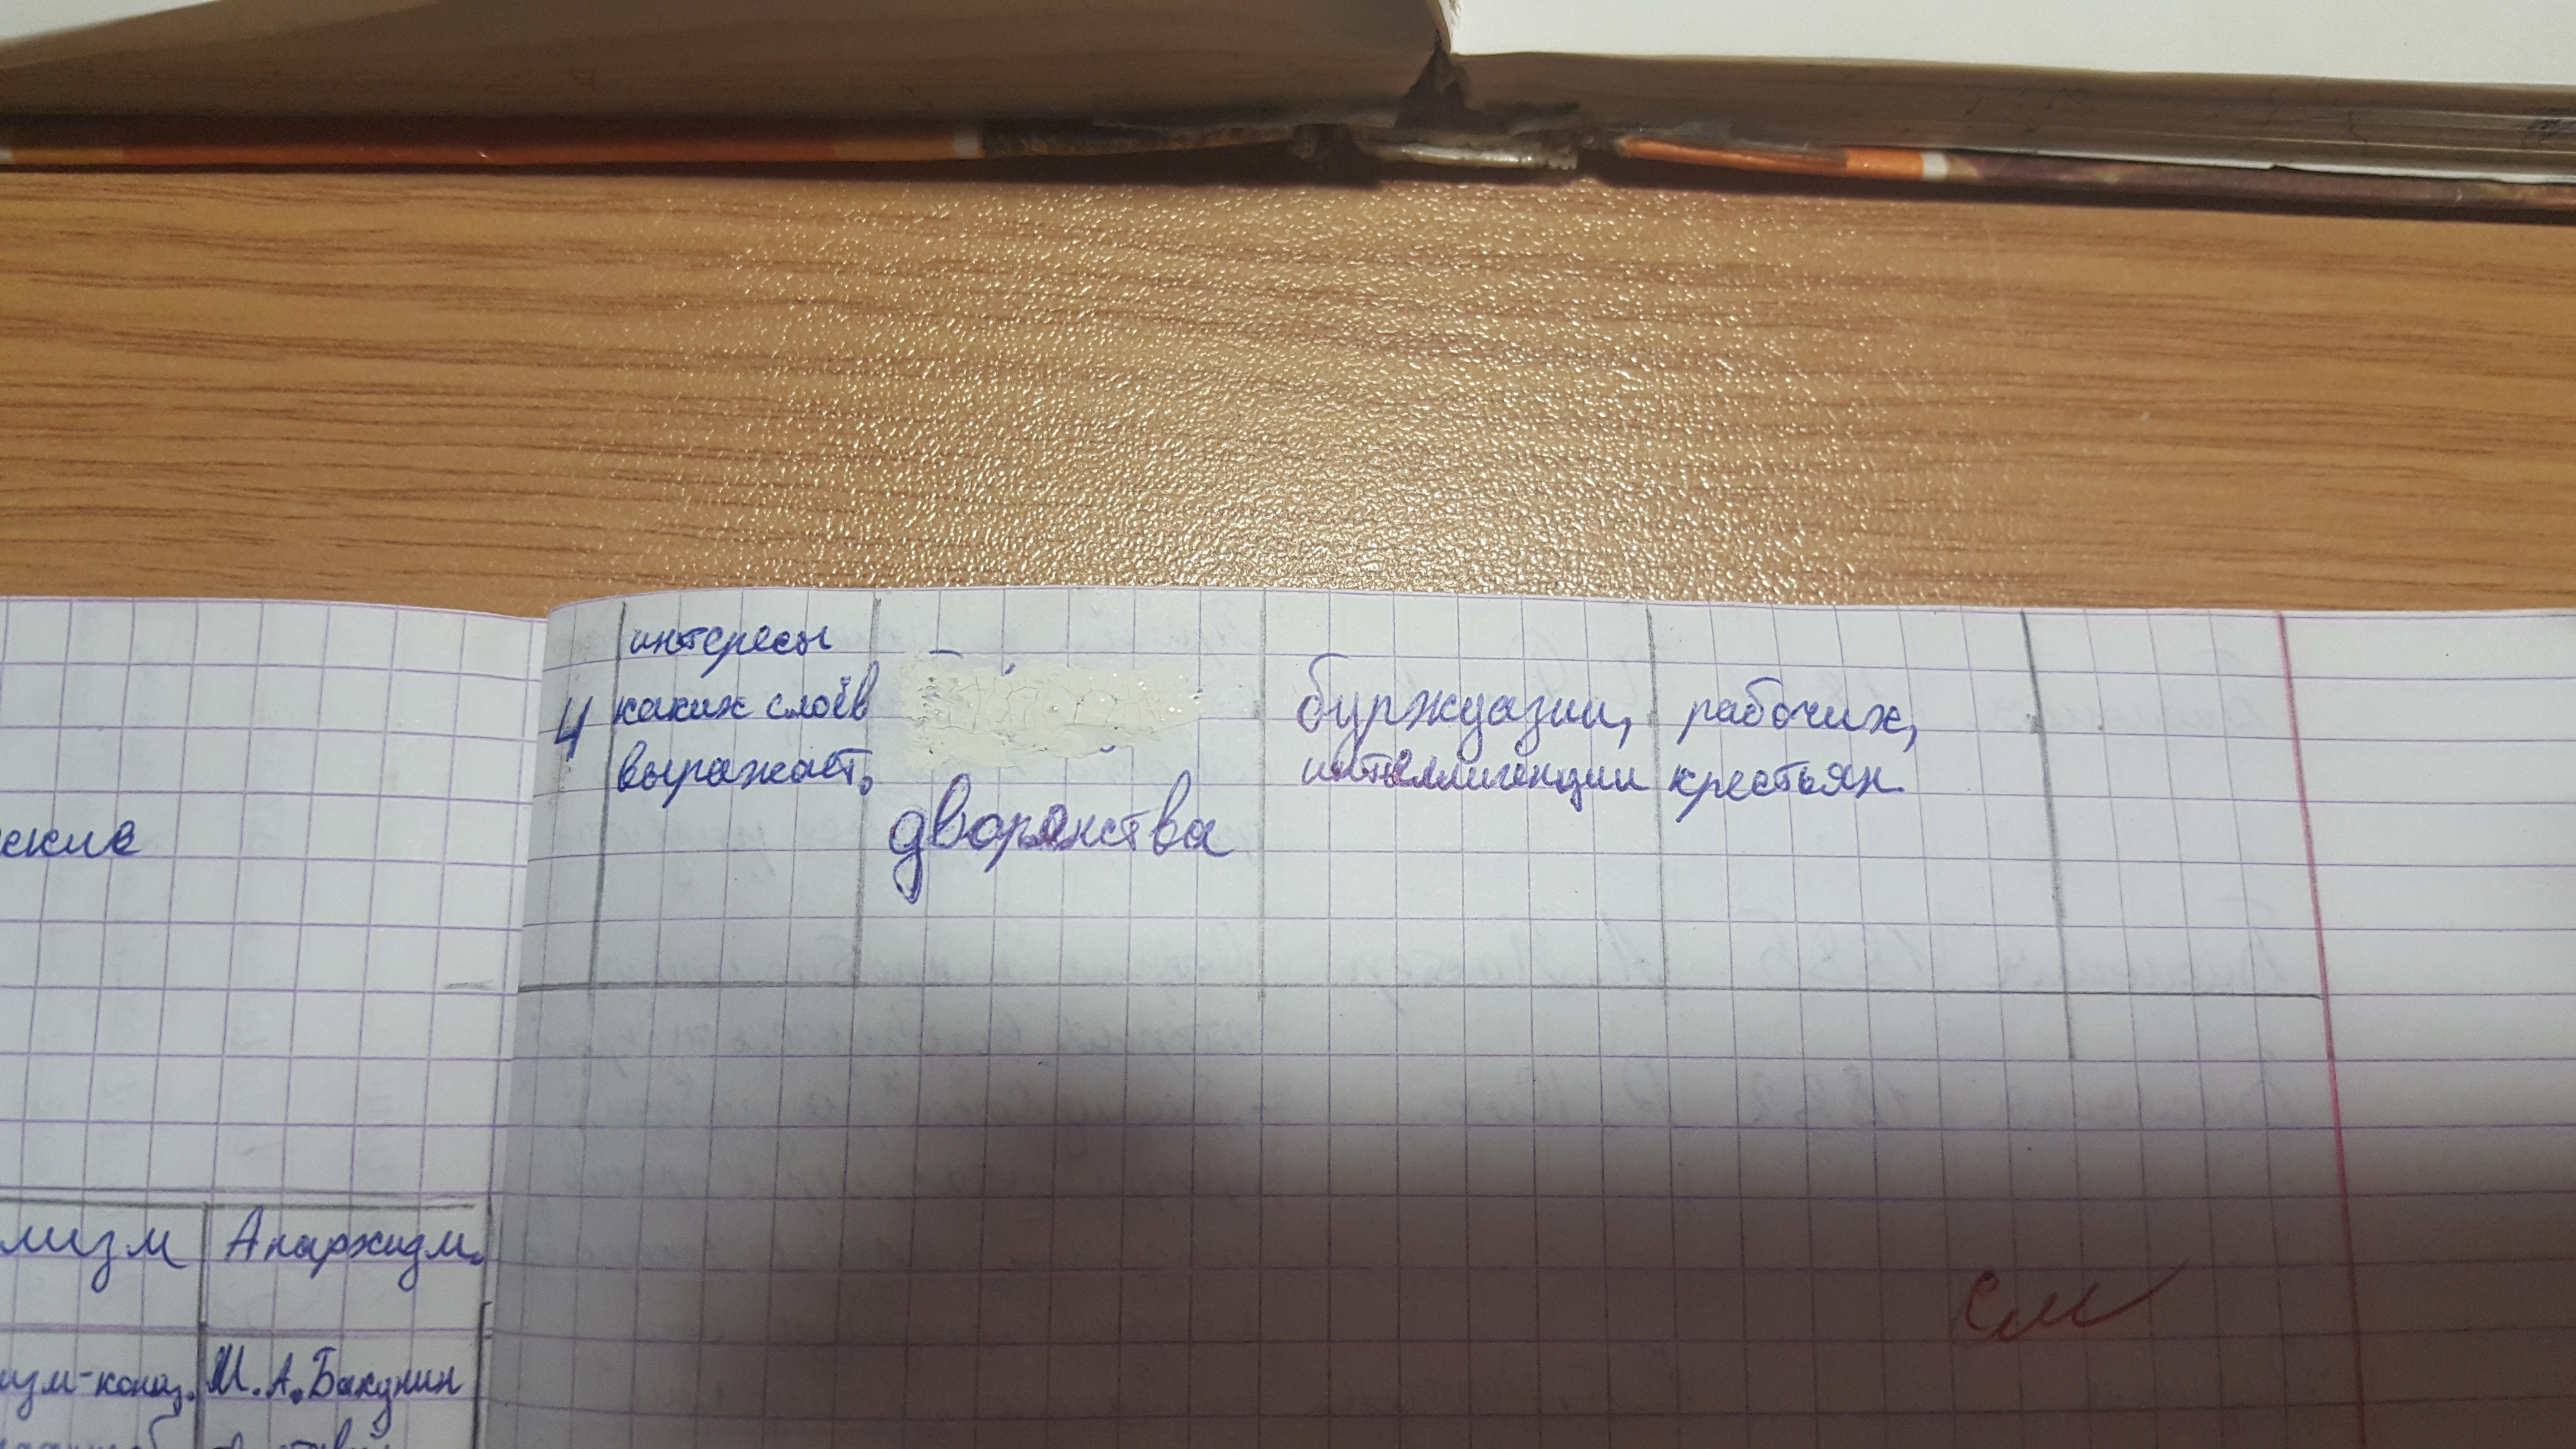 интересы
4 каких слоёв
выражает.
дворянства
буржуазии,
интеллигенции
рабочих,
крестьян.
ские
лизм
Анархизм.
изм-конц.
М. А. Бакунин
см